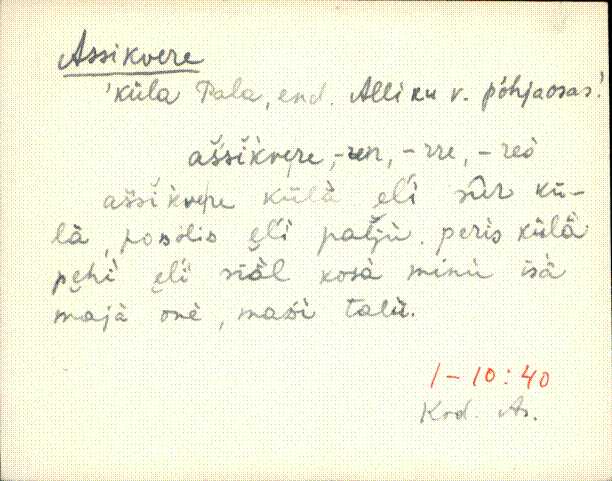 Assikvere
'küla Pala, end. Alliku v. põhjaosas!
aššikvere, -ren, -rre, -red
aššikvere külä eĺi sūr kü-
lä, possis eĺi paĺju. peris külä
pehi eĺi siäl kosa minu isä
maja one, masi talu.
1-10:40
Kod. As.